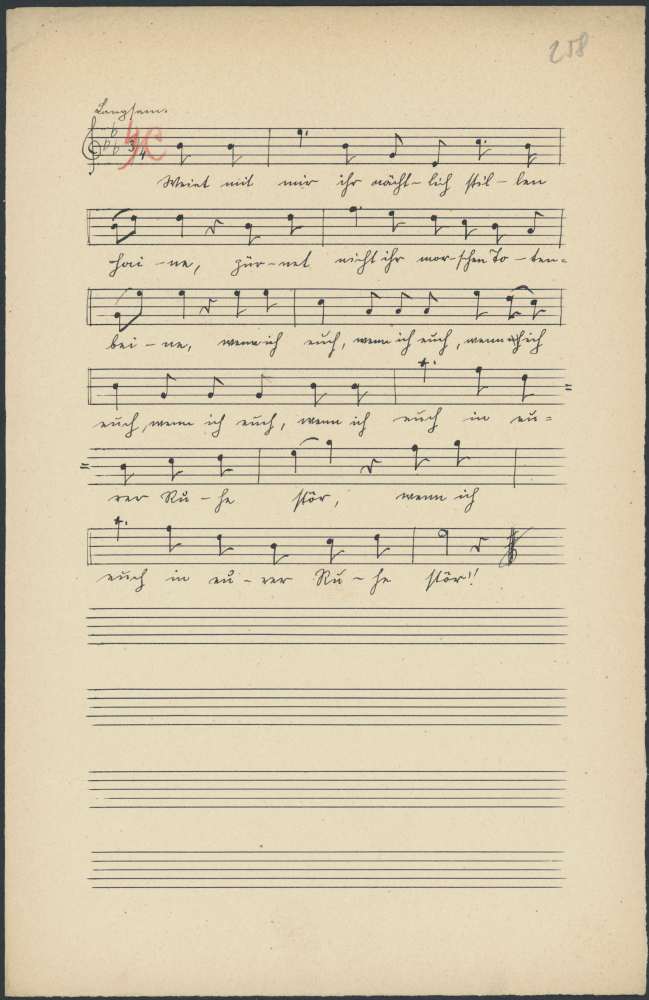 258
Langsam.
3/4 C
Weint mit mir ihr nächt-lich stil-len
Hai-ne, zür-net nicht ihr mor-schen To-ten=
bei-ne, wenn ich euch, wenn ich euch, wenn ich
euch, wenn ich euch, wenn ich euch in eu=
rer Ru-he stör, wenn ich
euch in eu-rer Ru-he stör!